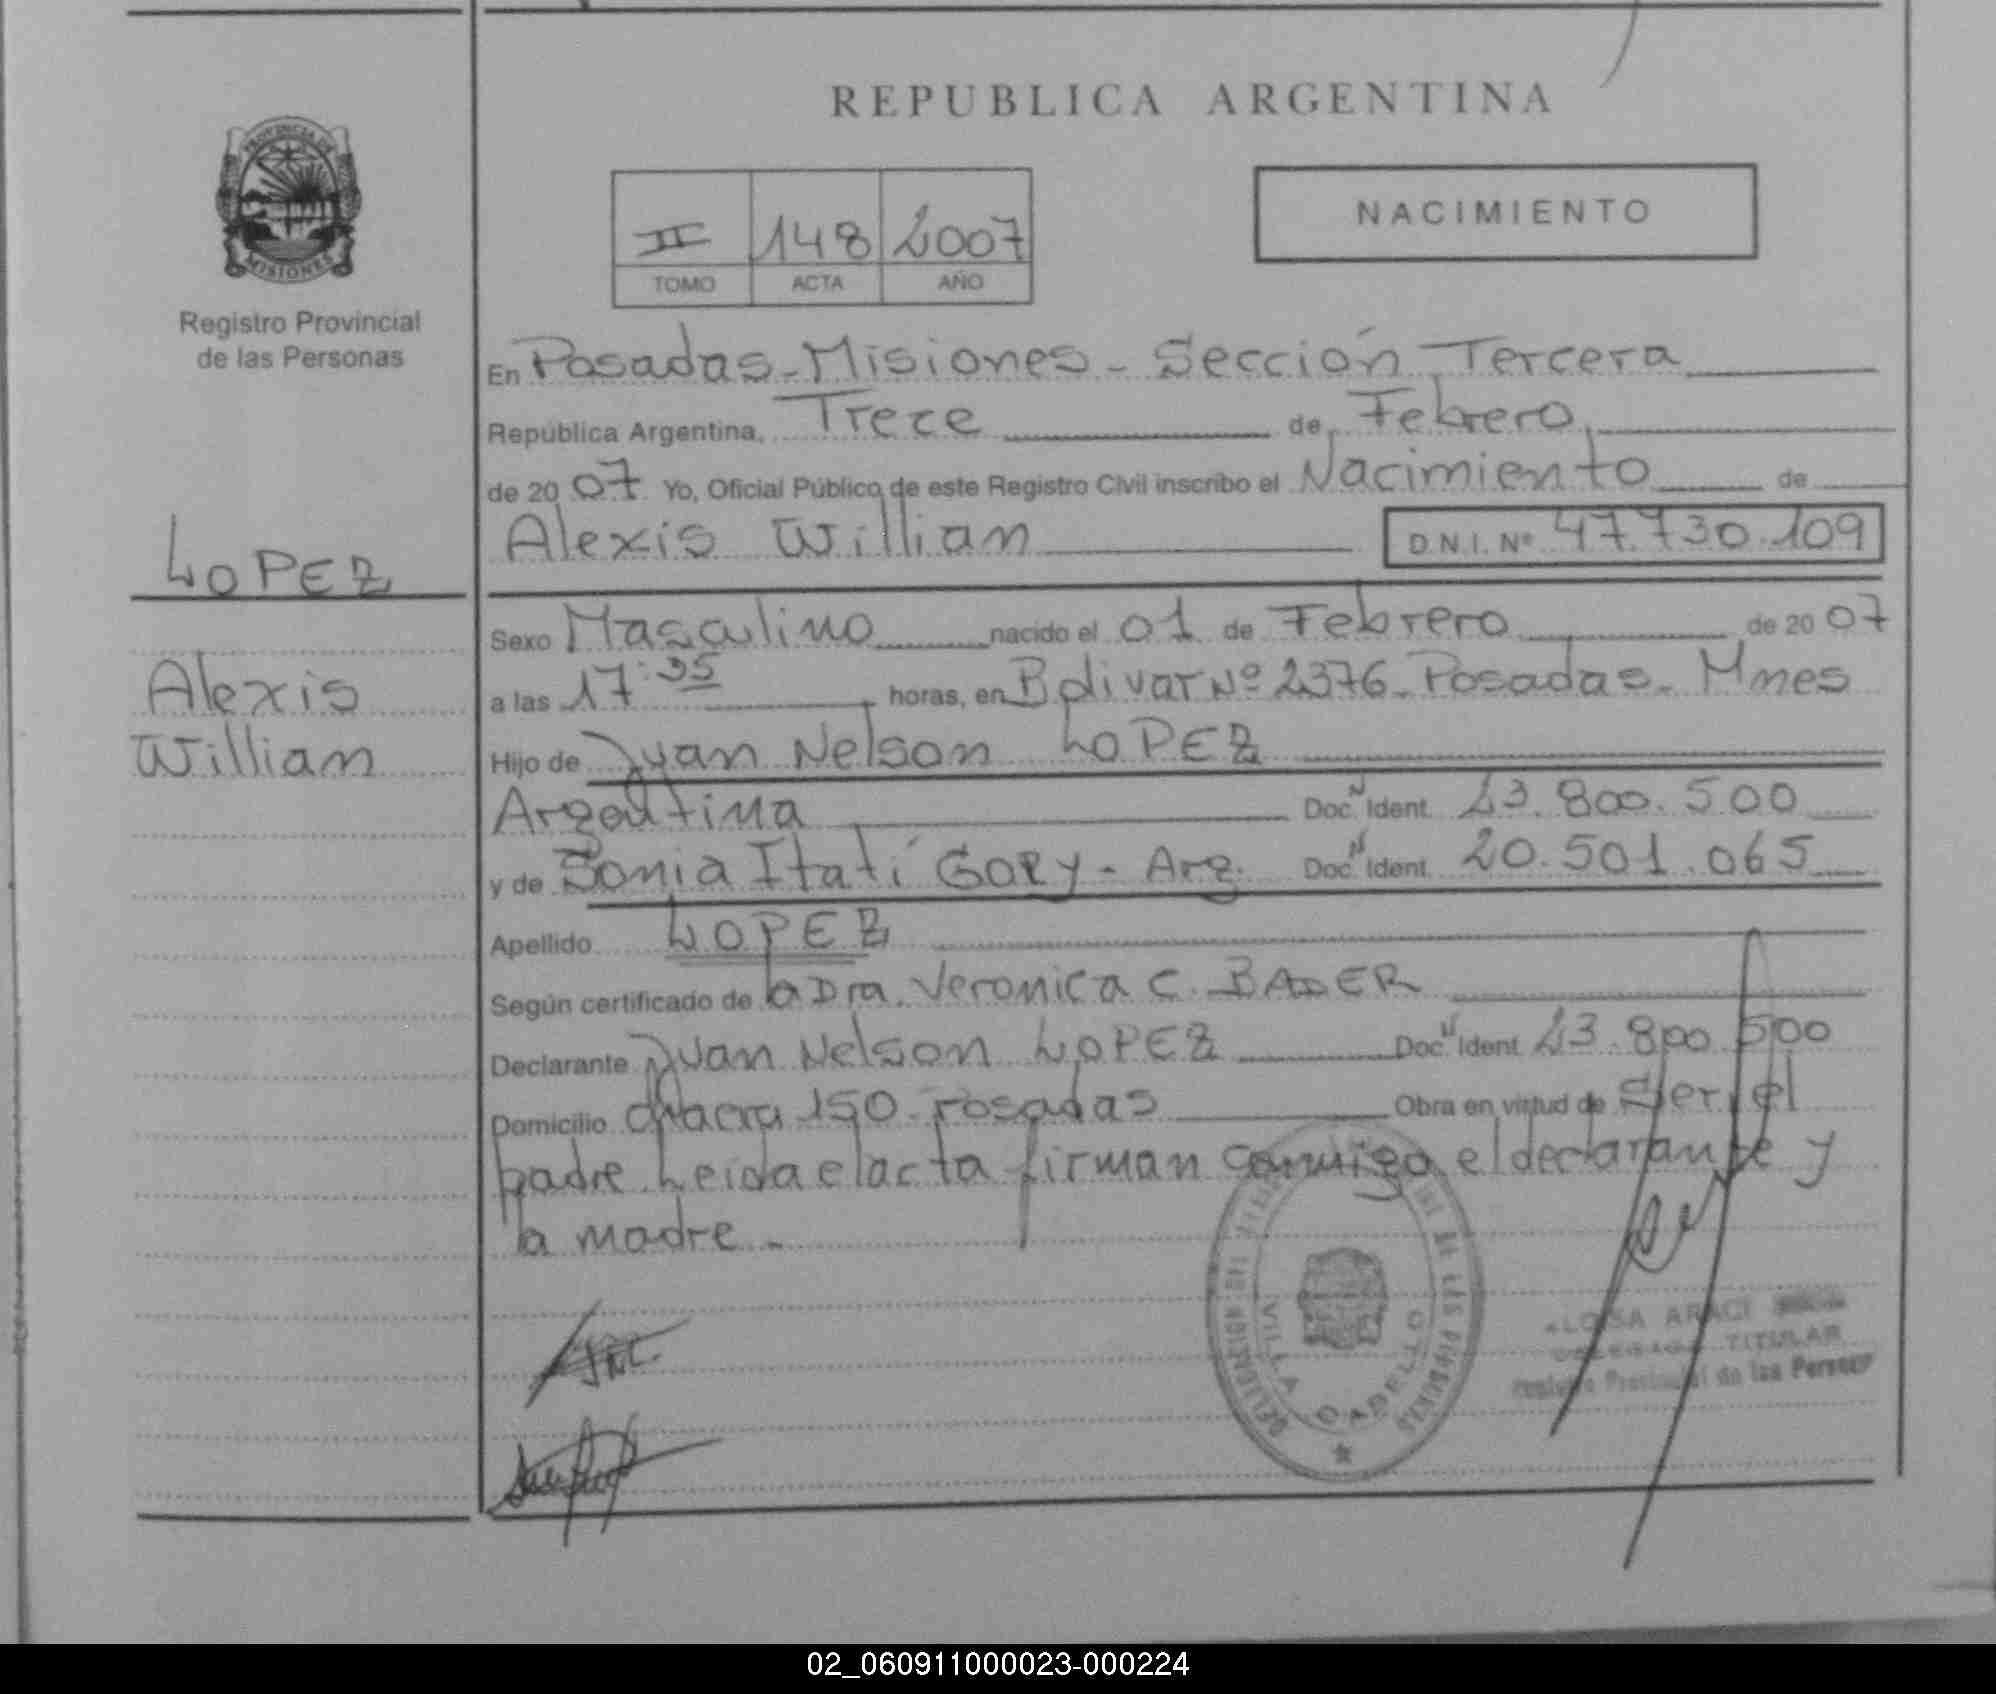 REPUBLICA ARGENTINA
PROVINCIA DE
MISIONES
Registro Provincial
de las Personas
II 148 2007
TOMO ACTA AÑO
NACIMIENTO
En Posadas - Misiones - Sección Tercera
República Argentina, Trece de Febrero
de 20 07 Yo, Oficial Público de este Registro Civil inscribo el Nacimiento de
Alexis Willian D.N.I. Nº 47.730.109
LOPEZ
Alexis
Willian
Sexo Masculino nacido el 01 de Febrero de 20 07
a las 17:35 horas, en Bolivar Nº 2376 - Posadas - Mnes
Hijo de Juan Nelson LOPEZ
Argentina Doc. N Ident. 23.800.500
y de Sonia Itatí - Arg. Doc. N Ident. 20.501.065
Apellido LOPEZ
Según certificado de la Dra. Veronica C. BADER
Declarante Juan Nelson LOPEZ Doc. N Ident. 23.800.500
Domicilio chacra 150 - Posadas Obra en virtud de Ser el
padre Leida el acta firman conmigo el declarante y
la madre -
DE LAS PERSONAS
VILLA
TITULAR
Registro Provincial de las Personas
02_060911000023-000224